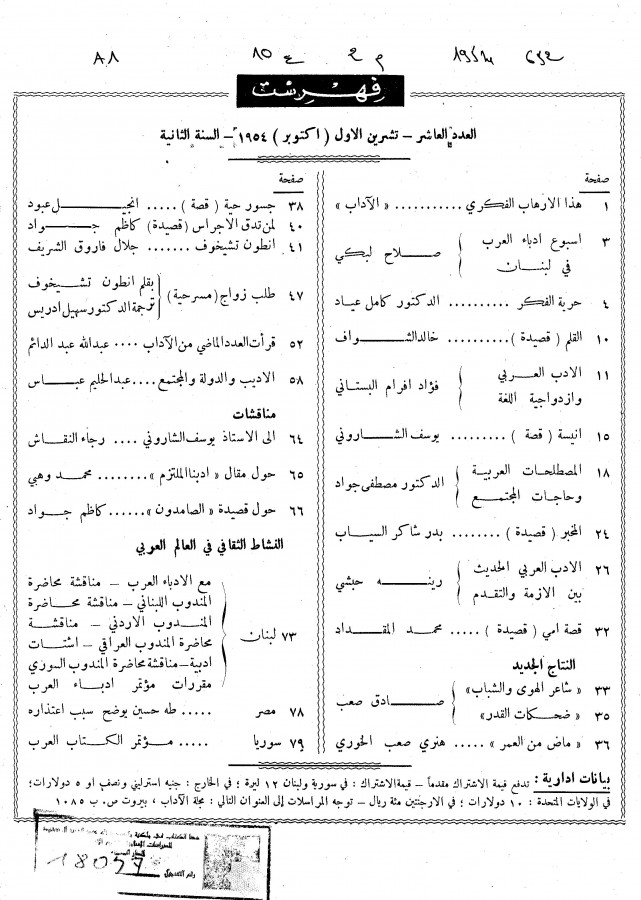 A1 10 ع 2 م 1954 652
فهرست
العدد العاشر – تشرين الاول ( اكتوبر ) ١٩٥٤ – السنة الثانية
صفحة
١ هذا الارهاب الفكري ........... « الآداب »
٣ اسبوع ادباء العرب في لبنان } صلاح لبكي
٤ حرية الفكر .......... الدكتور كامل عياد
١٠ القلم ( قصيدة ) .......... خالد الشواف
١١ الادب العربي وازدواجية اللغة } فؤاد افرام البستاني
١٥ انيسة ( قصة ) ......... يوسف الشاروني
١٨ المصطلحات العربية وحاجات المجتمع } الدكتور مصطفى جواد
٢٤ المخبر ( قصيدة ) ........ بدر شاكر السياب
٢٦ الادب العربي الحديث بين الازمة والتقدم } رينه حبشي
٣٢ قصة امي ( قصيدة ) ..... محمد المقداد
النتاج الجديد
٣٣ « شاعر الهوى والشباب »
٣٥ « ضحكات القدر » } صادق صعب
٣٦ « ماض من العمر » ..... هنري صعب الخوري
صفحة
٣٨ جسور حية ( قصة ) ..... انجيل عبود
٤٠ لمن تدق الاجراس ( قصيدة ) كاظم جواد
٤١ انطون تشيخوف ....... جلال فاروق الشريف
٤٧ طلب زواج ( مسرحية ) } بقلم انطون تشيخوف
ترجمة الدكتور سهيل ادريس
٥٢ قرأت العدد الماضي من الآداب .... عبدالله عبد الدائم
٥٨ الاديب والدولة والمجتمع .... عبد الحليم عباس
مناقشات
٦٤ الى الاستاذ يوسف الشاروني .... رجاء النقاش
٦٥ حول مقال « ادبنا الملتزم » ........ محمد وهبي
٦٦ حول قصيدة « الصامدون » ...... كاظم جواد
النشاط الثقافي في العالم العربي
٧٣ لبنان } مع الادباء العرب – مناقشة محاضرة
المندوب اللبناني – مناقشة محاضرة
المندوب الاردني – مناقشة
محاضرة المندوب العراقي – اشتات
ادبية – مناقشة محاضرة المندوب السوري
مقررات مؤتمر ادباء العرب
٧٨ مصر ..... طه حسين يوضح سبب اعتذاره
٧٩ سوريا ..... مؤتمر الكتاب العرب
بيانات ادارية : تدفع قيمة الاشتراك مقدماً – قيمة الاشتراك : في سورية ولبنان ١٢ ليرة ؛ في الخارج : جنيه استرليني ونصف او ٥ دولارات ؛
في الولايات المتحدة : ١٠ دولارات ؛ في الارجنتين مئة ريال – توجه المراسلات إلى العنوان التالي : مجلة الآداب ، بيروت ص . ب ١٠٨٥
هذا الكتاب
رقم التسجيل